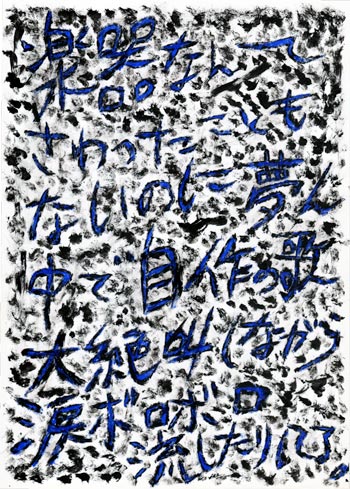 楽器なんて
さわったことも
ないのに夢ん
中で自作の歌
大絶叫しながら
涙ボロボロ
流したりして。